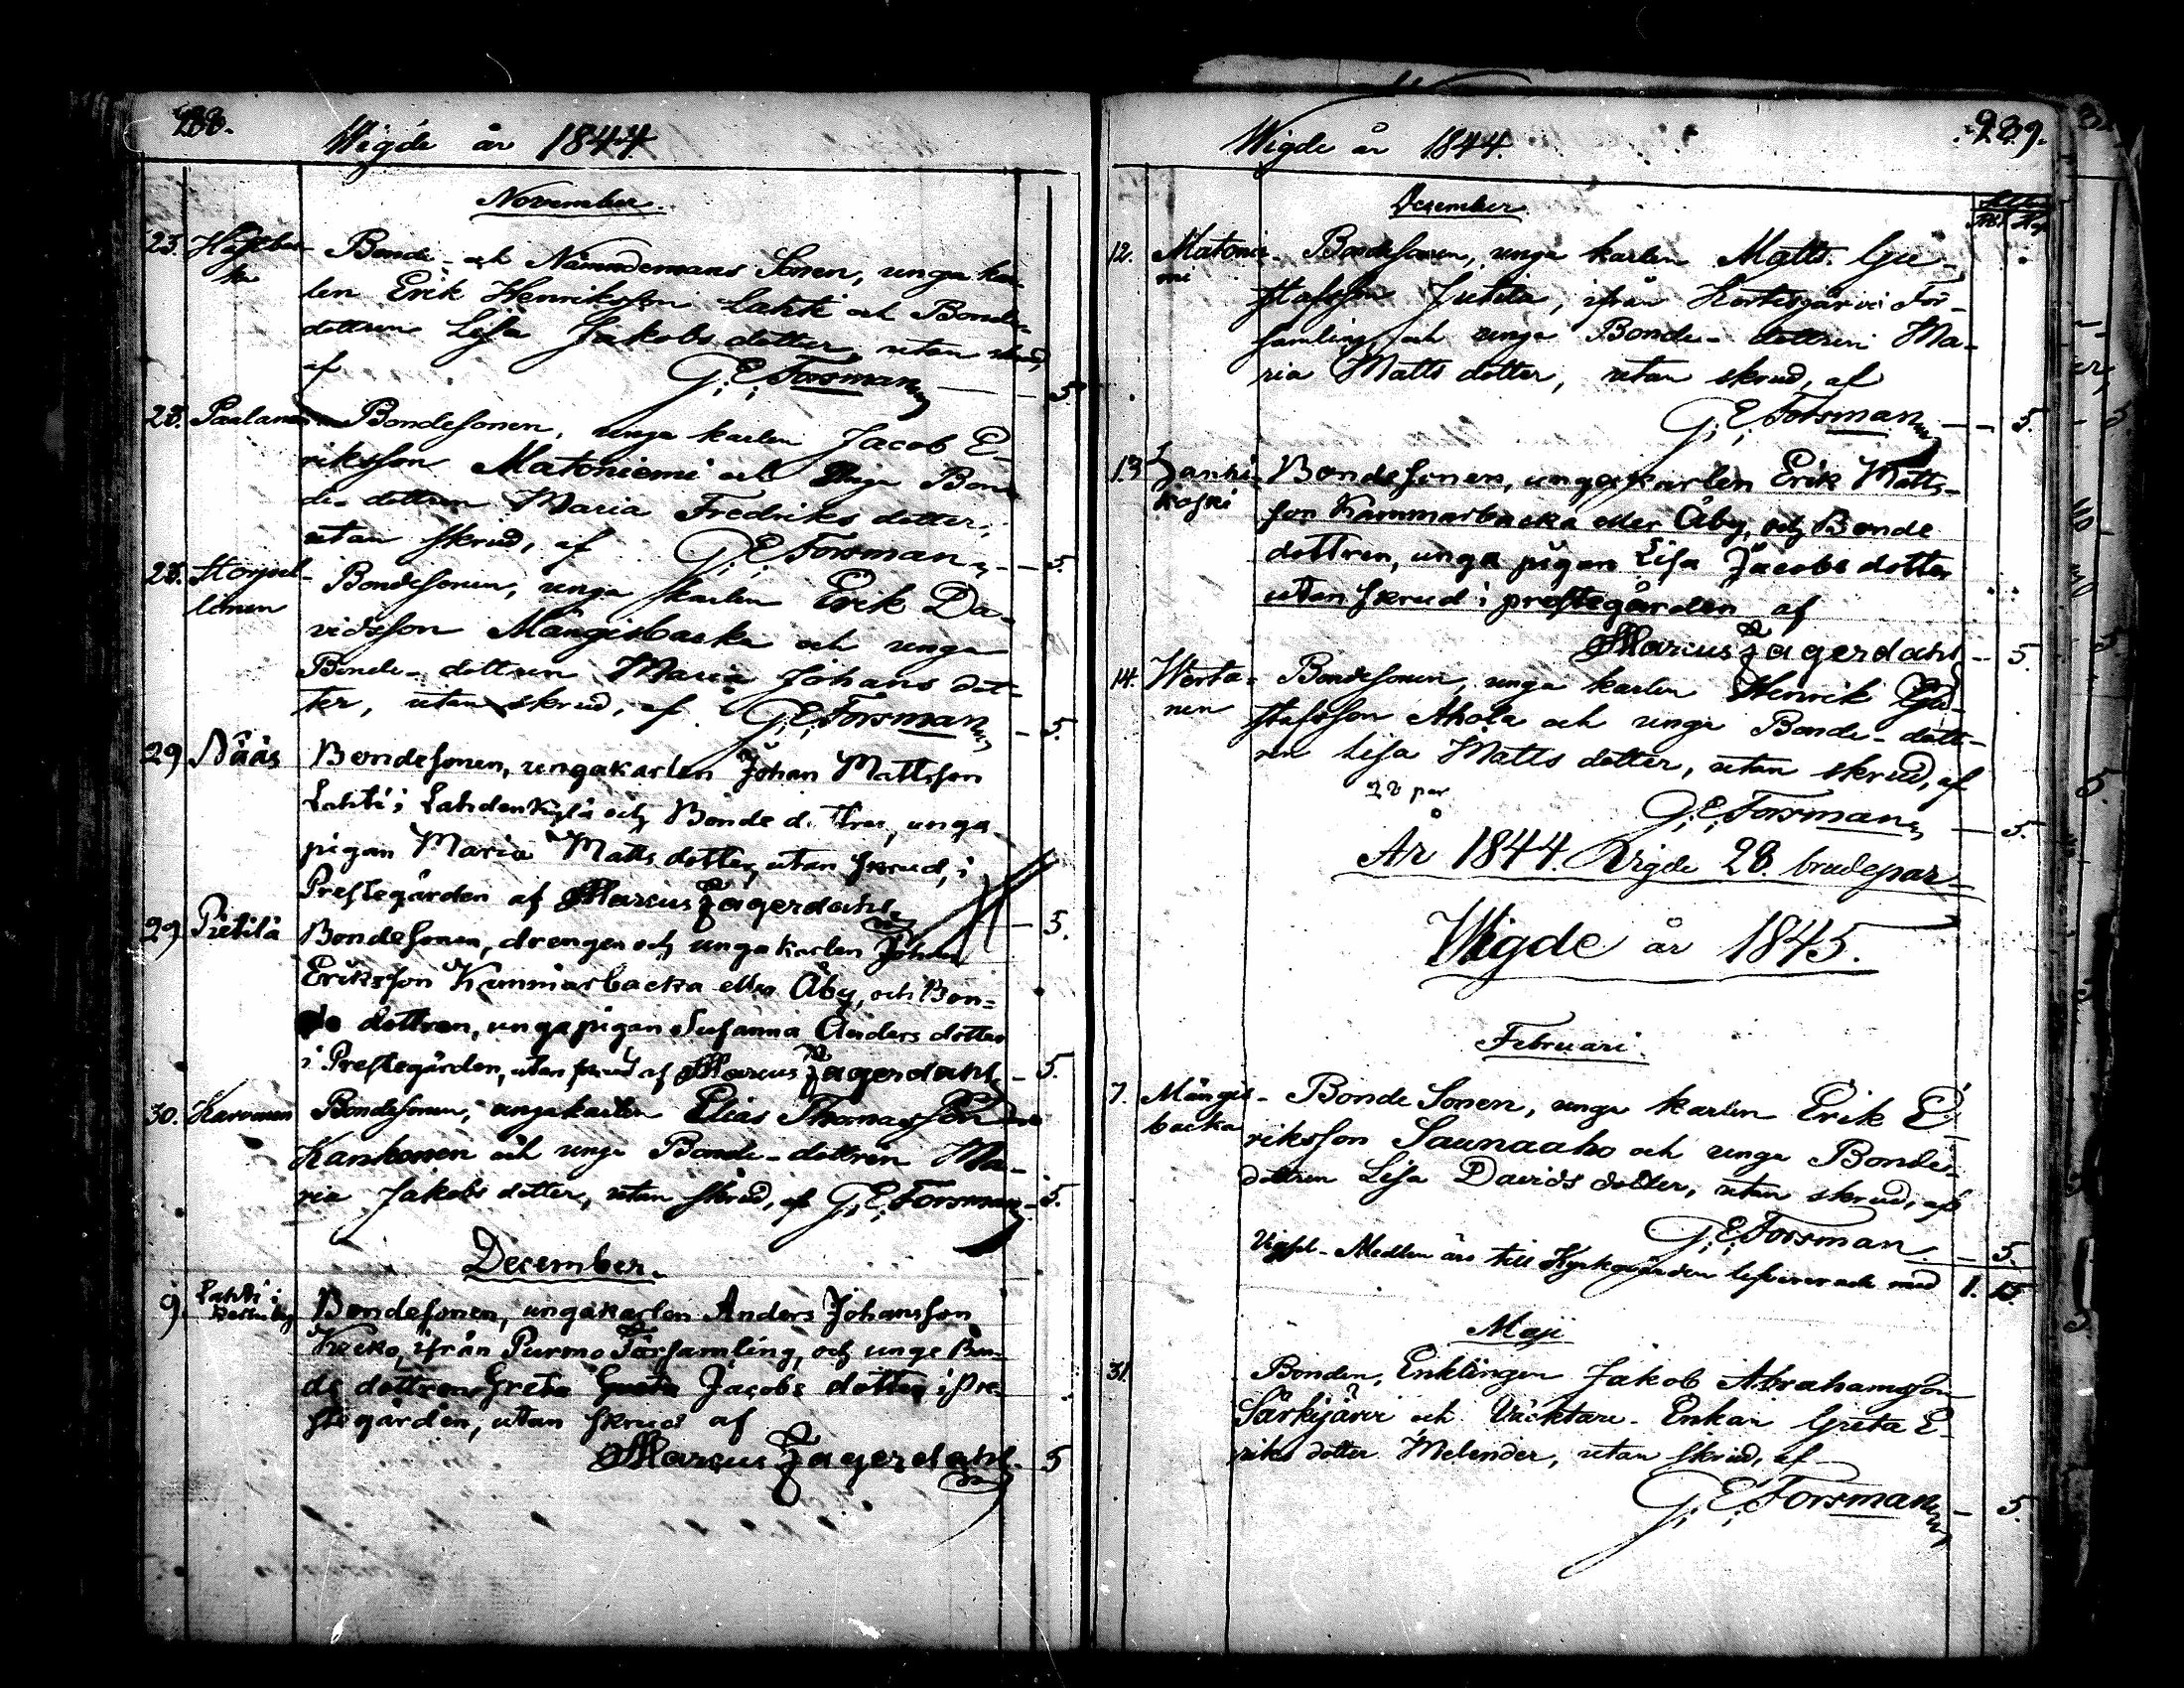 Wigde år 1844
November.
23. Bonde- och Nämndemans Sonen, unga kar-
len Erik Henriksson Lahti och Bonde-
dottren Lisa Jakobs dotter, utan skrud,
af G. E. Forsman — 5.
28. Bondesonen, unga karlen Jacob E-
riksson Matoniemi och Bon-
de-dottren Maria Fredriks dotter,
utan skrud, af G. E. Forsman — 5.
28. Bondesonen, unga karlen Erik Da-
vidsson Mångsbacka och unga
Bonde-dottren Maria Johans dot-
ter, utan skrud, af G. E. Forsman — 5.
29 Nääs Bondesonen, ungakarlen Johan Mattsson
Lahti i Lahdenkylä och Bonde d. tren, unga
pigan Maria Matts dotter, utan skrud, i
Prestegården af Marcus Zagerdahl — 5.
29 Pietilä Bondesonen, drengen och ungakarlen Johan
Eriksson Kammarbacka eller Åby, och Bon=
de dottren, unga pigan Susanna Anders dotter
i Prestegården, utan skrud af Marcus Zagerdahl — 5.
30. Karvonen Bondesonen, ungakarlen Elias Thomasson
Kankonen och unga Bonde-dottren Ma-
ria Jakobs dotter, utan skrud, af G. E. Forsman — 5.
December.
9. Lahti i Bondesonen, ungakarlen Anders Johansson
ifrån Purmo Församling, och unge Bon-
de dottren Greta Greta Jacobs dotter i Pre-
stegården, utan skrud af
Marcus Zagerdahl — 5
239.
Wigde år 1844.
December
12. Matonie- Bondesonen, unga karlen Matts Gu-
mi stafsson Jutila, ifrån Kortesjärvi För-
samling, och unga Bonde-dottren Ma-
ria Matts dotter, utan skrud, af
G. E. Forsman — 5.
13 Zanhi- Bondesonen, ungakarlen Erik Matts-
koski son Kammarbacka eller Åby, och Bonde
dottren, unga pigan Lisa Jacobs dotter
utan skrud i prestegården af
Marcus Zagerdahl — 5.
14. Werta- Bondesonen, unga karlen Henrik Gu-
nen stafsson Ahola och unga Bonde-dott-
ren Lisa Matts dotter, utan skrud, af
28 par
G. E. Forsman — 5.
År 1844. Wigde 28. brudepar
Wigde år 1845.
Februari.
7. Mångs- Bonde Sonen, unga karlen Erik E-
backa riksson Saunaaho och unga Bonde-
dottren Lisa Davids dotter, utan skrud, af
G. E. Forsman — 5.
Vigsl-Medlen äro till Kyrkovärden lefvererade med 1. 15.
Maji
31. Bonden, Enklingen Jakob Abrahamsson
Särkijärvi och Väcktare-Enkan Greta E-
riks dotter Melender, utan skrud, af
G. E. Forsman — 5.